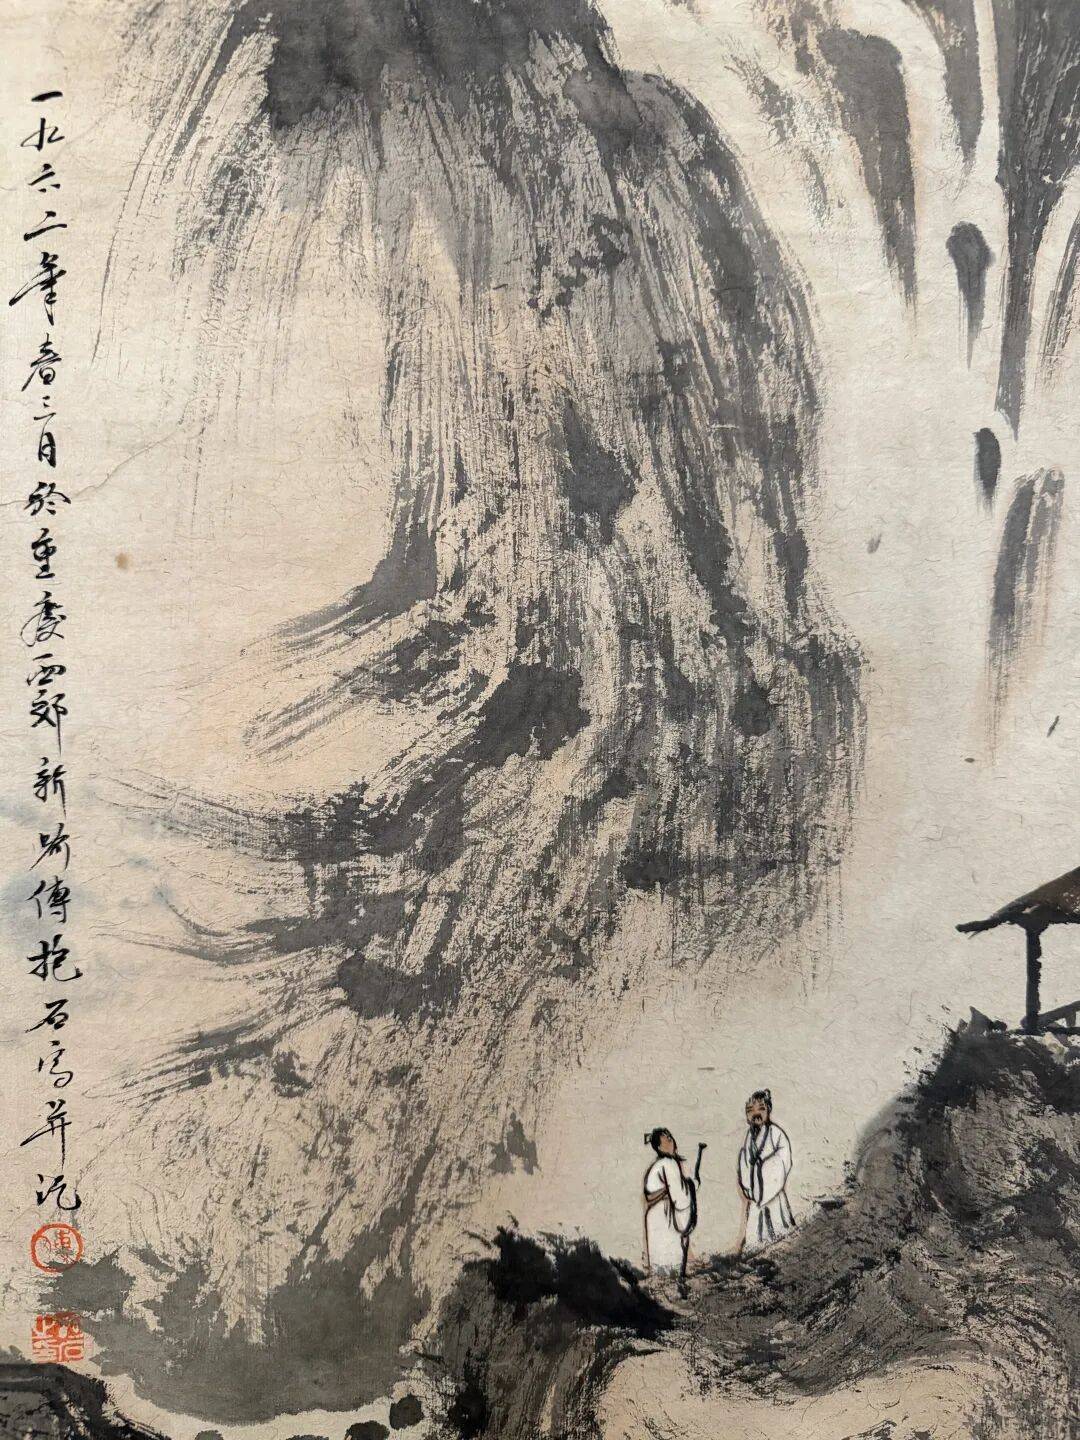 一九六二年春三月於重慶西郊新喻傅抱石寫并記